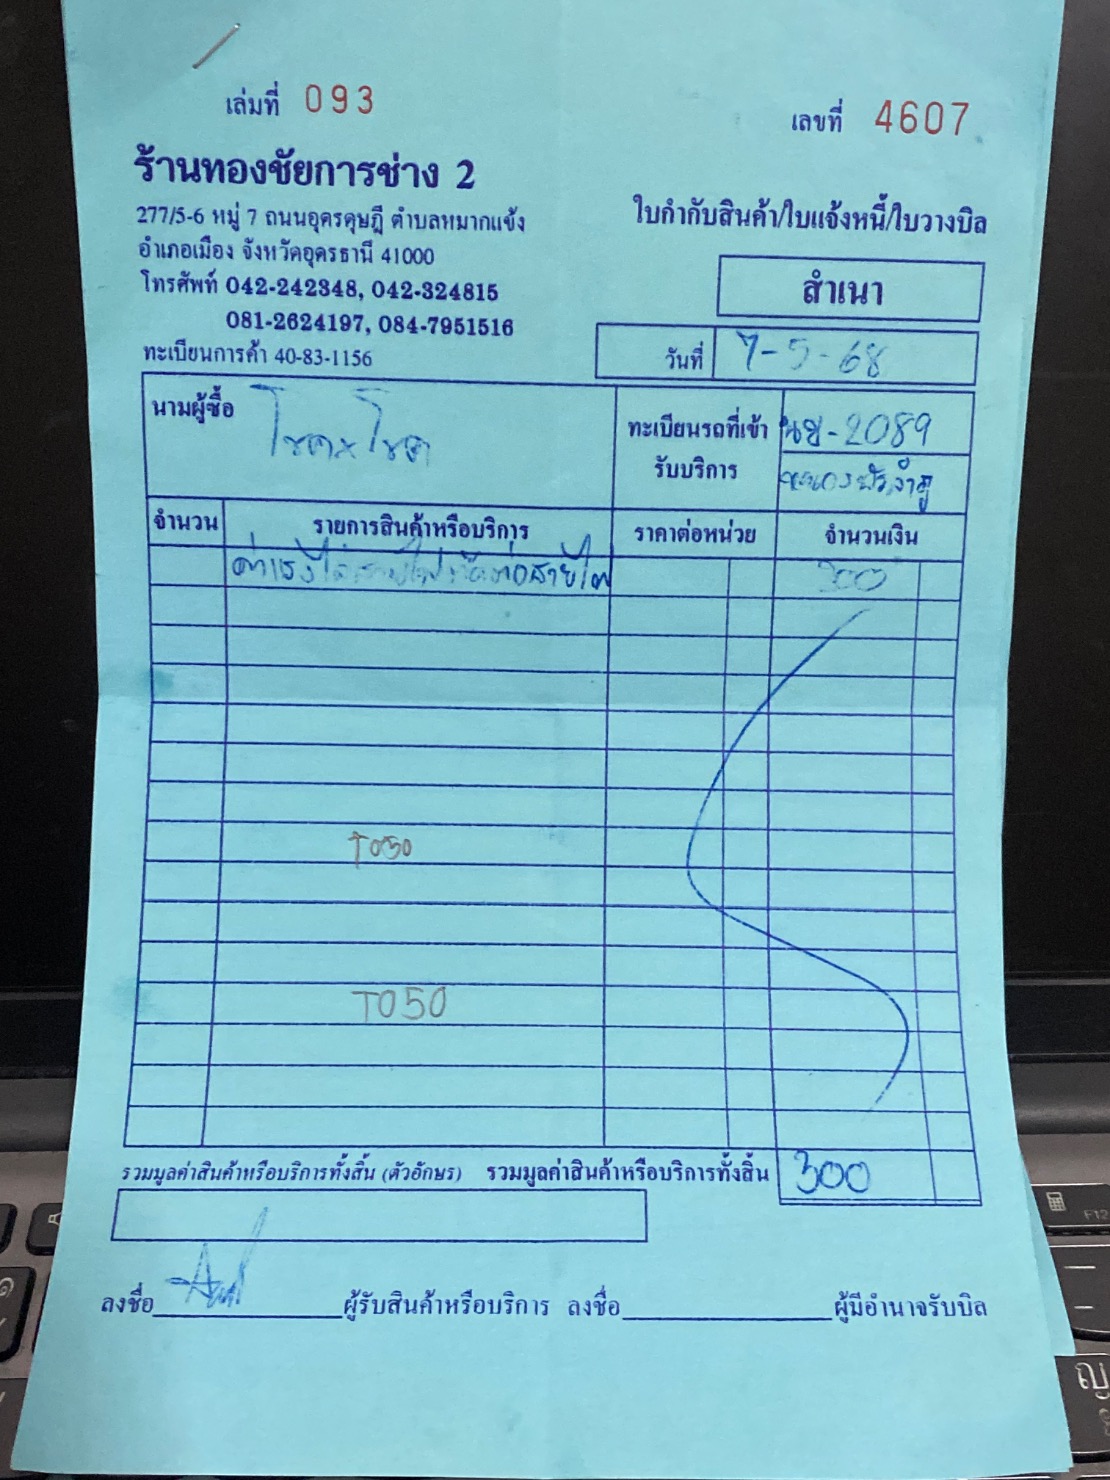 เล่มที่ 093
เลขที่ 4607
ร้านทองชัยการช่าง 2
277/5-6 หมู่ 7 ถนนอุดรดุษฎี ตำบลหมากแข้ง
อำเภอเมือง จังหวัดอุดรธานี 41000
โทรศัพท์ 042-242348, 042-324815
081-2624197, 084-7951516
ทะเบียนการค้า 40-83-1156
ใบกำกับสินค้า/ใบแจ้งหนี้/ใบวางบิล
สำเนา
วันที่ 7-5-68
นามผู้ซื้อ โชค
ทะเบียนรถที่เข้ารับบริการ 2089
หนองบัวลำภู
จำนวน รายการสินค้าหรือบริการ ราคาต่อหน่วย จำนวนเงิน
ค่าแรง 300
T050
T050
รวมมูลค่าสินค้าหรือบริการทั้งสิ้น (ตัวอักษร) รวมมูลค่าสินค้าหรือบริการทั้งสิ้น 300
ลงชื่อ ผู้รับสินค้าหรือบริการ ลงชื่อ ผู้มีอำนาจรับบิล